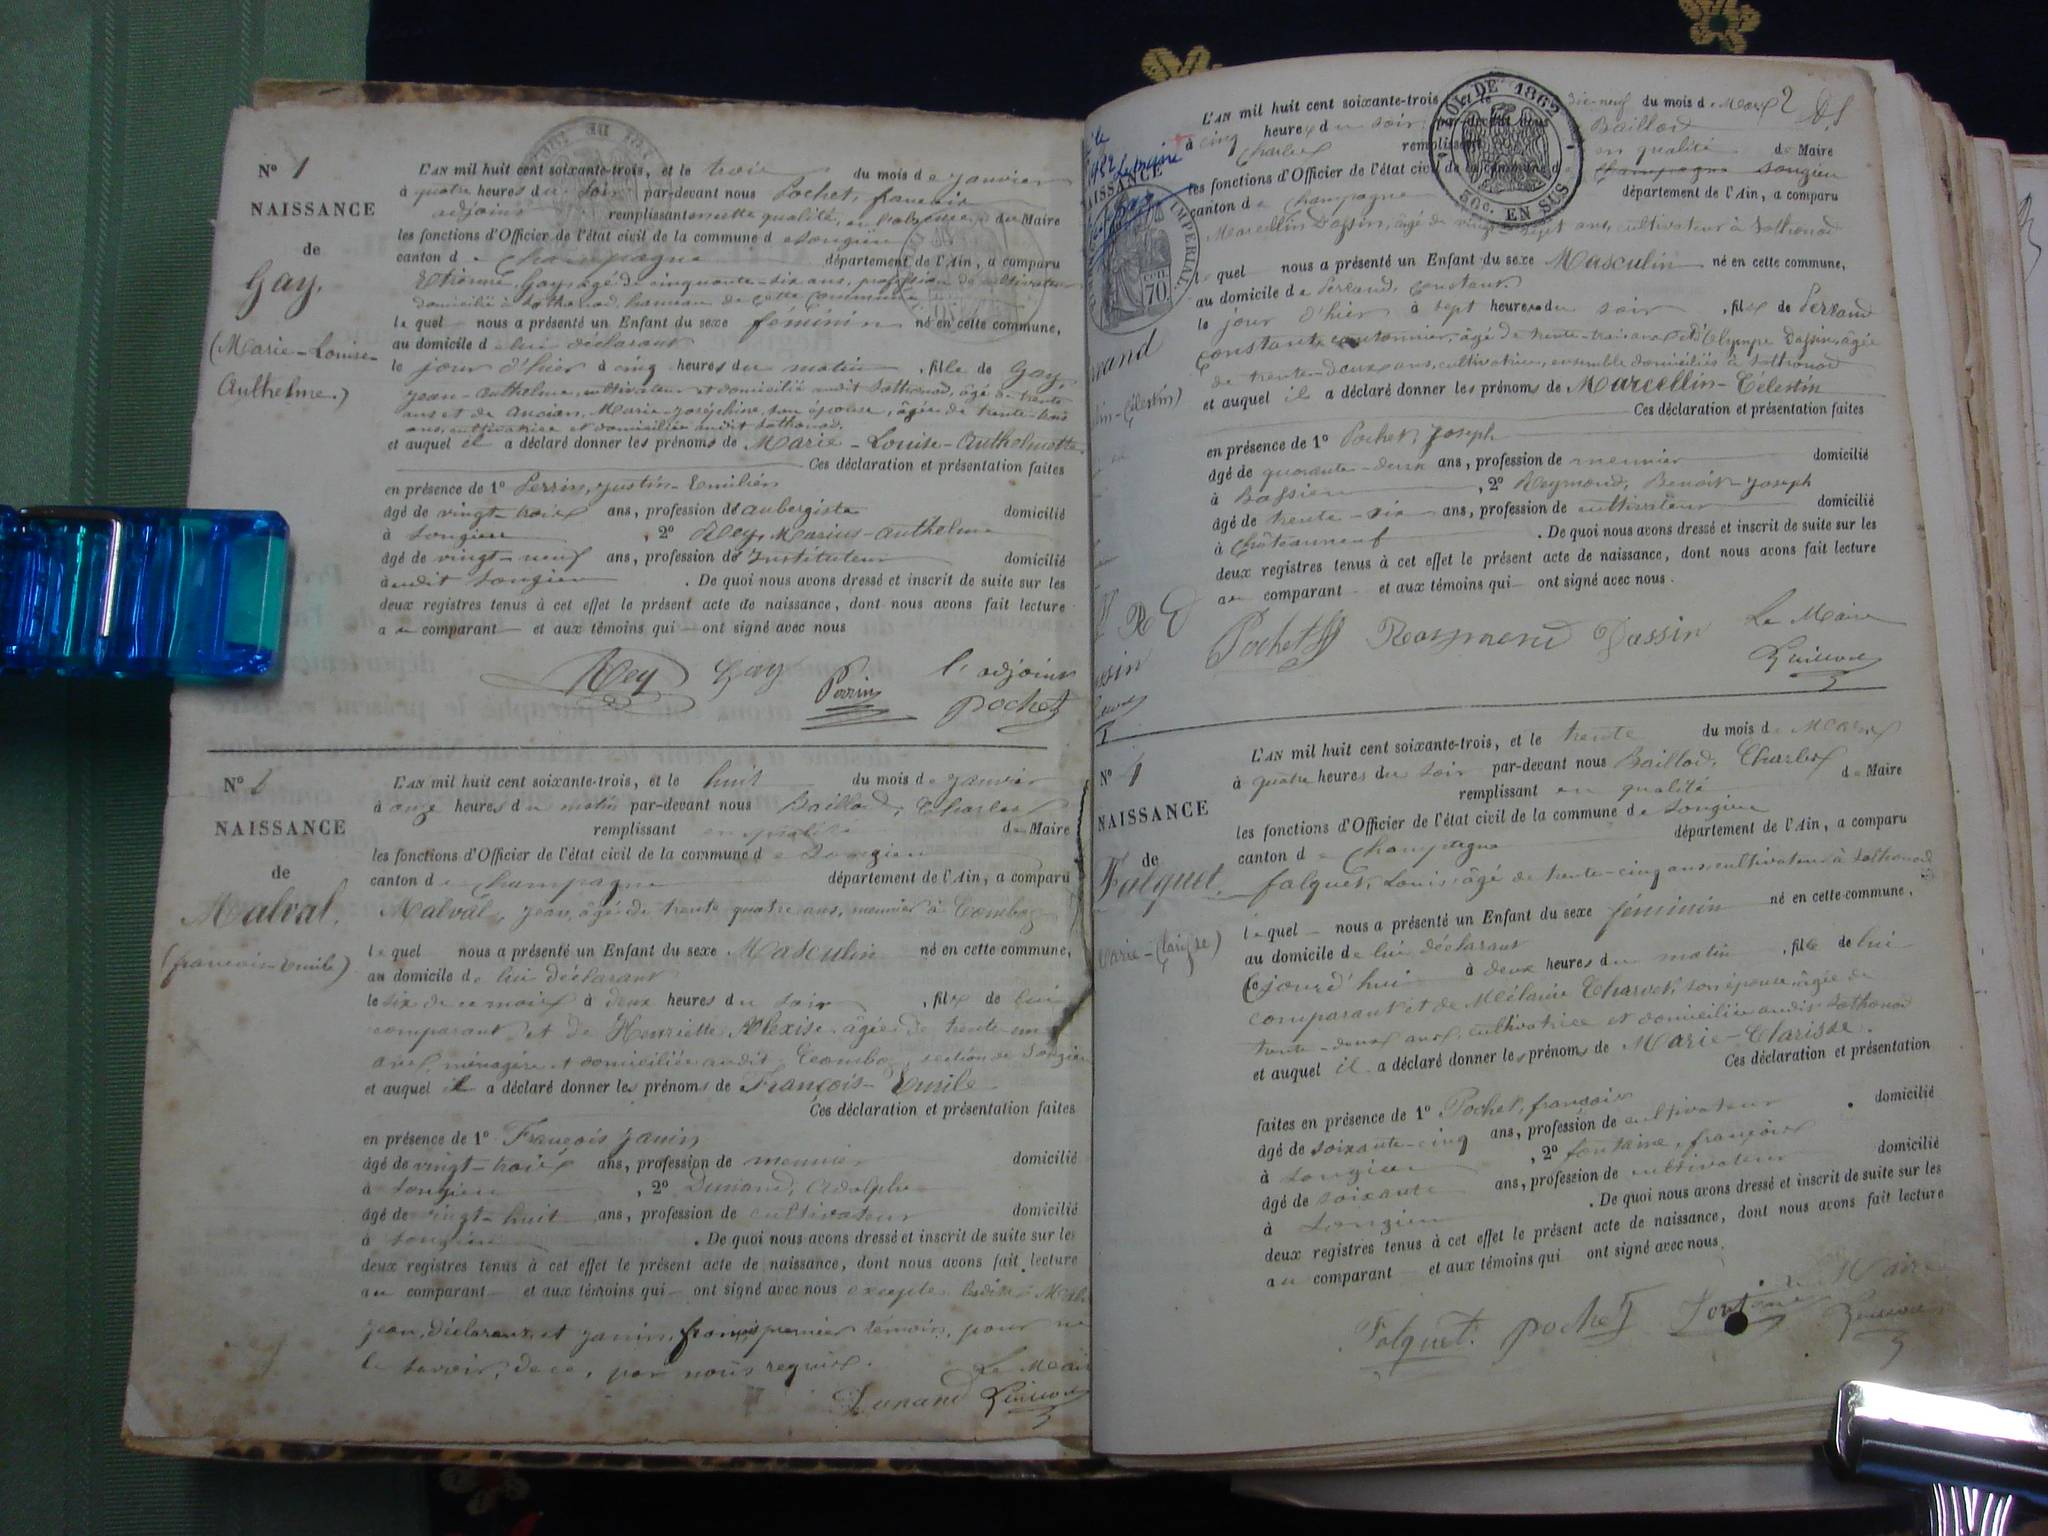 N° 1
NAISSANCE
de
Gay,
(Marie-Louise-
Anthelme.)
L'AN mil huit cent soixante-trois, et le trois du mois de Janvier
à quatre heures du soir par-devant nous Pochet, françois
adjoint remplissant en cette qualité, du Maire
les fonctions d'Officier de l'état civil de la commune de Songieu
canton de Champagne département de l'Ain, a comparu
Etienne Gay, âgé de cinquante-six ans, profession de cultivateur
domicilié à Sothonod, hameau de cette commune
lequel nous a présenté un Enfant du sexe féminin né en cette commune,
au domicile de lui déclarant
le jour d'hier à cinq heures du matin, fille de Gay,
Jean-Anthelme, cultivateur et domicilié audit Sothonod, âgé de trente
ans et de Ancian, Marie-Joséphine, son épouse, âgée de trente-trois
ans, cultivatrice et domiciliée audit Sothonod.
et auquel il a déclaré donner les prénoms de Marie-Louise-Anthelmette
Ces déclaration et présentation faites
en présence de 1° Perrin, Justin-Emilien
âgé de vingt-trois ans, profession d'aubergiste domicilié
à Songieu, 2° Rey, Marius-Anthelme
âgé de vingt-neuf ans, profession d'Instituteur domicilié
audit Songieu. De quoi nous avons dressé et inscrit de suite sur les
deux registres tenus à cet effet le présent acte de naissance, dont nous avons fait lecture
au comparant et aux témoins qui ont signé avec nous
Rey Gay Perrin l'adjoint
Pochet
N° 2
NAISSANCE
de
Malval.
(françois-Emile)
L'AN mil huit cent soixante-trois, et le huit du mois de Janvier
à onze heures du matin par-devant nous Baillod, Charles
remplissant en qualité de Maire
les fonctions d'Officier de l'état civil de la commune de Songieu
canton de Champagne département de l'Ain, a comparu
Malval, Jean, âgé de trente quatre ans, meunier à
lequel nous a présenté un Enfant du sexe Masculin né en cette commune,
au domicile de lui déclarant
le six de ce mois à deux heures du soir, fils de lui
comparant et de Henriette Alexise âgée de trente-un
ans, ménagère et domiciliée audit section de Songieu
et auquel il a déclaré donner les prénoms de François-Emile
Ces déclaration et présentation faites
en présence de 1° François Janin
âgé de vingt-trois ans, profession de meunier domicilié
à Songieu, 2° Dunand, Adolphe
âgé de vingt-huit ans, profession de cultivateur domicilié
à Songieu. De quoi nous avons dressé et inscrit de suite sur les
deux registres tenus à cet effet le présent acte de naissance, dont nous avons fait lecture
au comparant et aux témoins qui ont signé avec nous excepté
Jean, déclarant, et Janin, françois premier témoin, pour ne
le savoir, de ce, par nous requis.
Le Maire
Dunand
LOI DE 1862
50c. EN SUS
2
L'AN mil huit cent soixante-trois et le dix-neuf du mois de Mars
à cinq heures du soir par-devant nous Baillod
Charles remplissant en qualité de Maire
les fonctions d'Officier de l'état civil de la commune de Champagne Songieu
canton de Champagne département de l'Ain, a comparu
Marcellin Dassin, âgé de vingt-sept ans, cultivateur à Sothonod
lequel nous a présenté un Enfant du sexe Masculin né en cette commune,
au domicile de Perrand, Constant.
le jour d'hier à sept heures du soir, fils de Perrand
Constant, cantonnier, âgé de trente-trois ans et d'Olympe Dassin, âgée
de trente-deux ans, cultivatrice, ensemble domiciliés à Sothonod
et auquel il a déclaré donner les prénoms de Marcellin-Célestin
Ces déclaration et présentation faites
en présence de 1° Pochet, Joseph
âgé de quarante-deux ans, profession de meunier domicilié
à Bassieu, 2° Reymond, Benoit-Joseph
âgé de trente-six ans, profession de cultivateur domicilié
à Châteauneuf. De quoi nous avons dressé et inscrit de suite sur les
deux registres tenus à cet effet le présent acte de naissance, dont nous avons fait lecture
au comparant et aux témoins qui ont signé avec nous.
Pochet Reymond Dassin Le Maire
N° 4
NAISSANCE
de
Falquet.
Marie-Clarisse)
L'AN mil huit cent soixante-trois, et le trente du mois de Mars
à quatre heures du soir par-devant nous Baillod, Charles
remplissant en qualité de Maire
les fonctions d'Officier de l'état civil de la commune de Songieu
canton de Champagne département de l'Ain, a comparu
falquet, Louis, âgé de trente-cinq ans, cultivateur à Sothonod
lequel nous a présenté un Enfant du sexe féminin né en cette commune,
au domicile de lui déclarant
cejourd'hui à deux heures du matin, fille de lui
comparant et de Mélanie Charvet, son épouse, âgée de
trente-deux ans, cultivatrice et domiciliée audit Sothonod
et auquel il a déclaré donner les prénoms de Marie-Clarisse.
Ces déclaration et présentation
faites en présence de 1° Pochet, françois
âgé de soixante-cinq ans, profession de cultivateur domicilié
à Songieu, 2° fontaine, françois
âgé de soixante ans, profession de cultivateur domicilié
à Songieu. De quoi nous avons dressé et inscrit de suite sur les
deux registres tenus à cet effet le présent acte de naissance, dont nous avons fait lecture
au comparant et aux témoins qui ont signé avec nous.
Le Maire
Falquet. Pochet fontaine